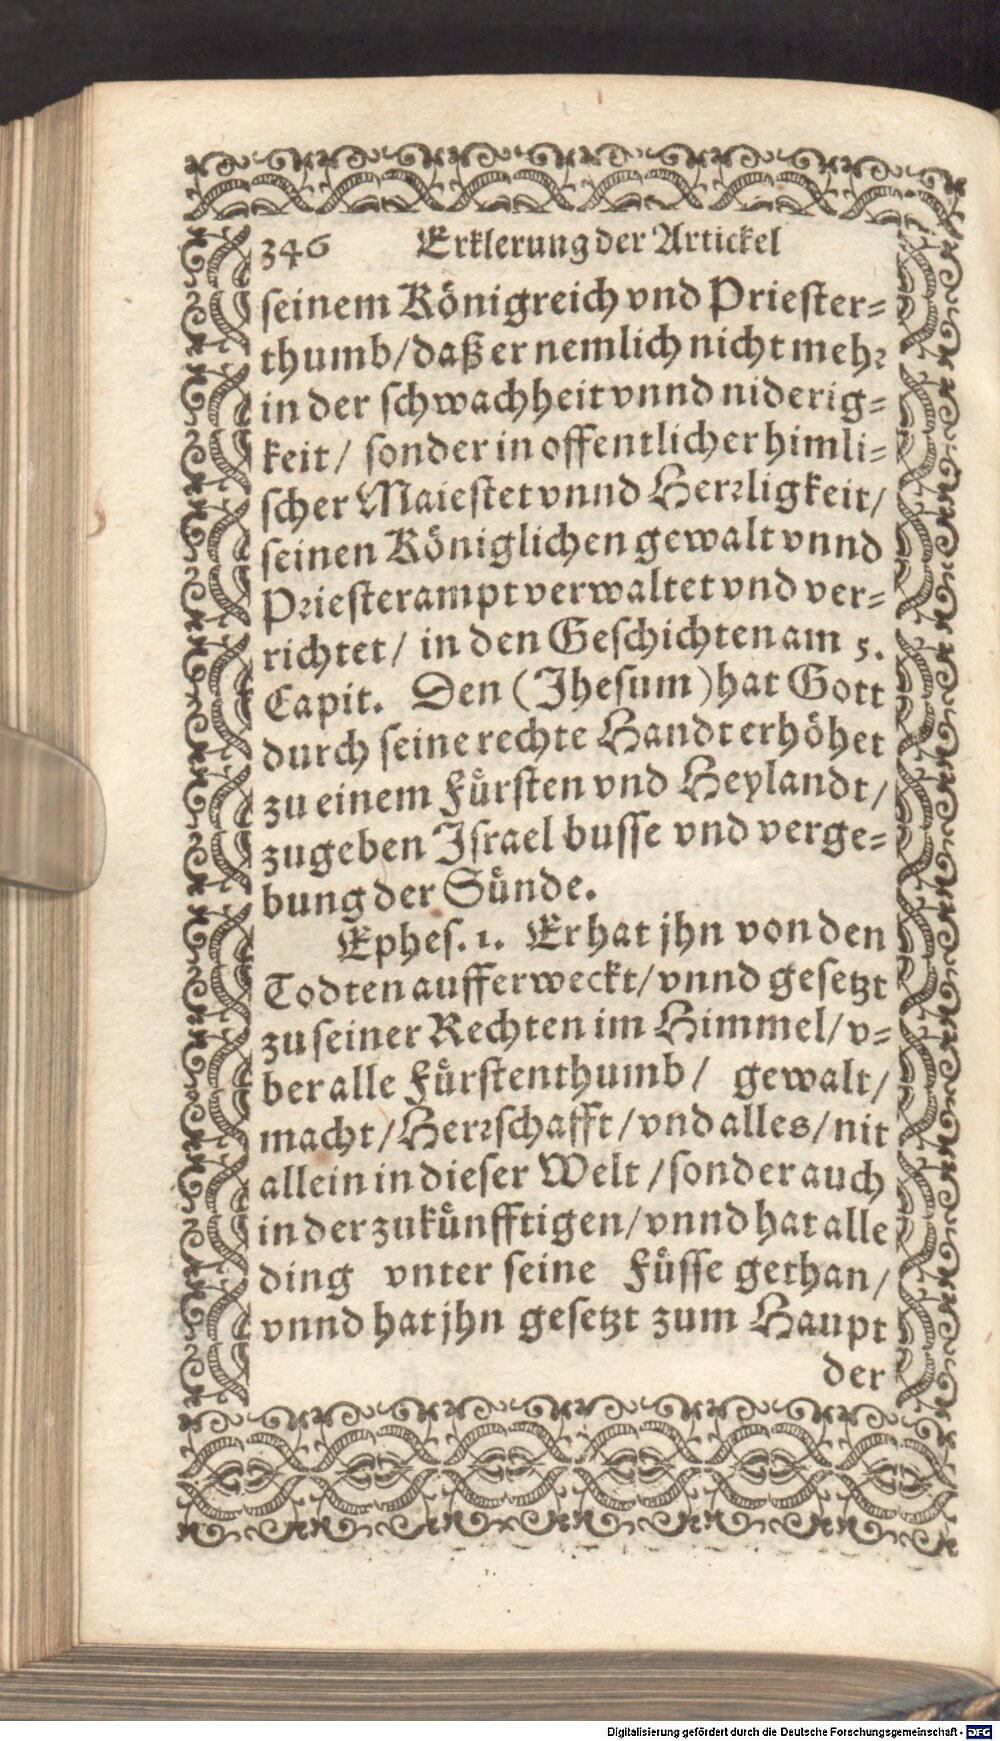 346 Erklerung der Artickel
seinem Königreich vnd Priester-
thumb/daß er nemlich nicht mehr
in der schwachheit vnnd niderig-
keit/ sonder in offentlicher himli-
scher Maiestet vnnd Herrligkeit/
seinen Königlichen gewalt vnnd
Priesterampt verwaltet vnd ver-
richtet/ in den Geschichten am 5.
Capit. Den (Jhesum) hat Gott
durch seine rechte Handt erhöhet
zu einem Fürsten vnd Heylandt/
zugeben Jsrael busse vnd verge-
bung der Sünde.
Ephes. 1. Er hat jhn von den
Todten aufferweckt/vnnd gesetzt
zu seiner Rechten im Himmel/ v-
ber alle Fürstenthumb/ gewalt/
macht/Herrschafft/vnd alles/nit
allein in dieser Welt/sonder auch
in der zukünfftigen/vnnd hat alle
ding vnter seine Füsse gethan/
vnnd hat jhn gesetzt zum Haupt
der
Digitalisierung gefördert durch die Deutsche Forschungsgemeinschaft - DFG